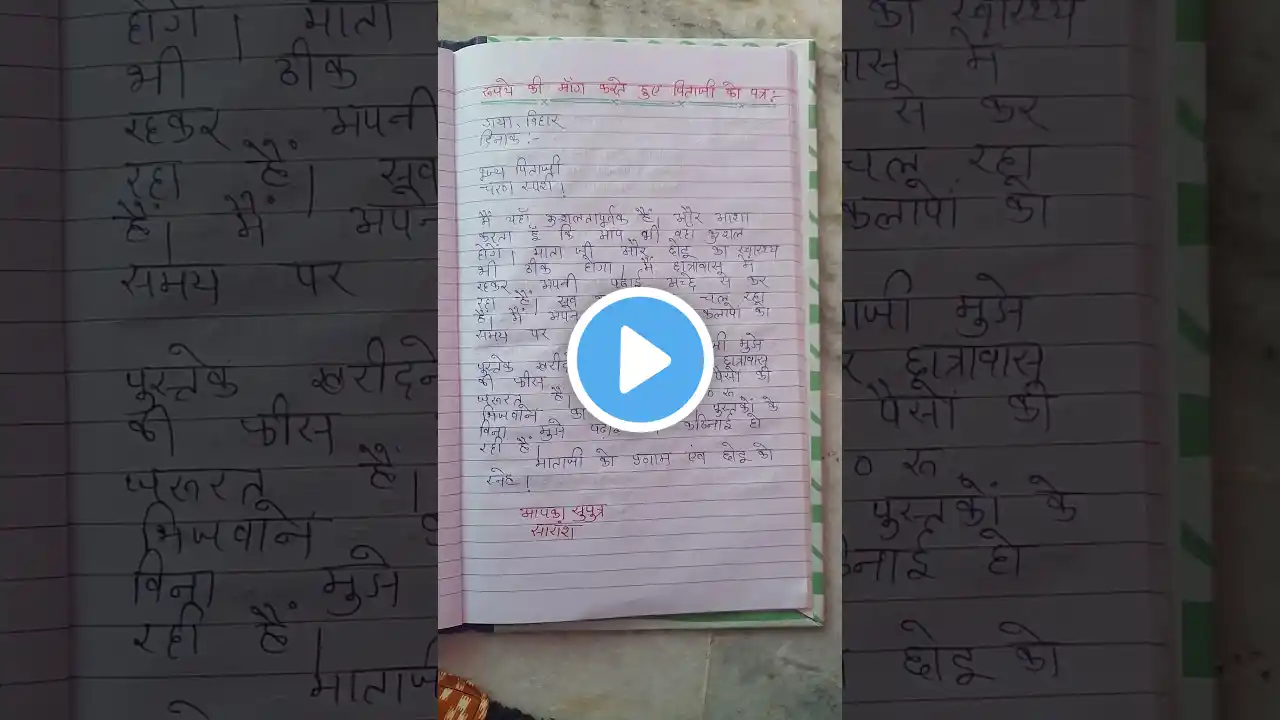 रुपये की माँग करते हुए पिताजी को पत्र :-
गया, बिहार
दिनांक :-
पूज्य पिताजी
चरण स्पर्श !
मैं यहाँ कुशलतापूर्वक हैं, और आशा
करता हूँ कि आप भी वहां कुशल
होगें। माता जी और छोटू का स्वास्थ्य
भी ठीक होगा। मैं छात्रावास में
रहकर अपनी पढ़ाई अच्छे से कर
रहा हैं। सूब चल रहा
हैं। मैं अपने कलापों को
समय पर
जी मुझे
पुस्तके खरीदने छात्रावास
की फीस पैसों की
जरूरत है। 0 रू
भिजवाने का पुस्तकों के
बिना मुझे पढ़ाई में कठिनाई हो
रही हैं।
माताजी को प्रणाम एंव छोटू को
स्नेह।
आपका सुपुत्र
सारांश